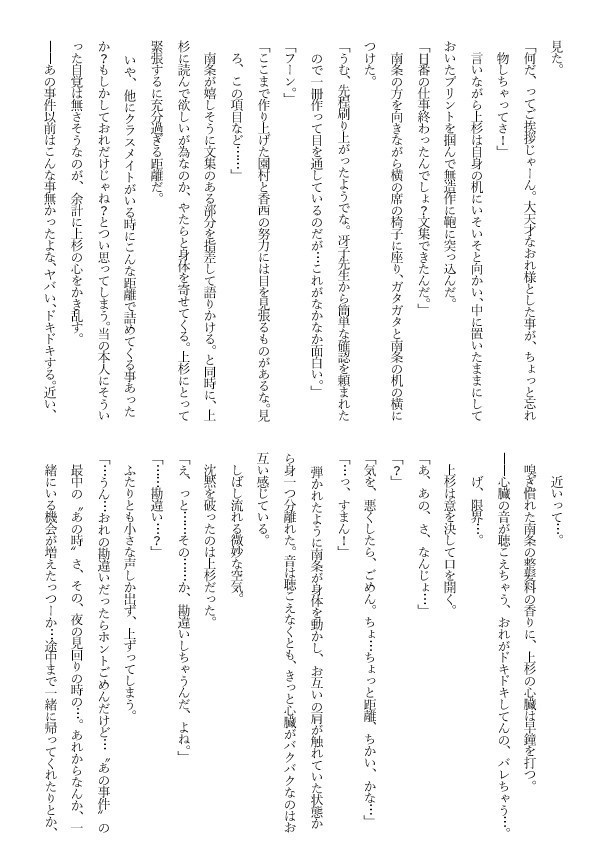 見た。
「何だ、ってご挨拶じゃーん。大天才なおれ様とした事が、ちょっと忘れ
物しちゃってさ！」
言いながら上杉は自身の机にいそいそと向かい、中に置いたままにして
おいたプリントを掴んで無造作に鞄に突っ込んだ。
「日番の仕事終わったんでしょ？文集できたんだ。」
南条の方を向きながら横の席の椅子に座り、ガタガタと南条の机の横に
つけた。
「うむ、先程刷り上がったようでな。冴子先生から簡単な確認を頼まれた
ので一冊作って目を通しているのだが…これがなかなか面白い。」
「フーン。」
「ここまで作り上げた園村と香西の努力には目を見張るものがあるな。見
ろ、この項目など……」
南条が嬉しそうに文集のある部分を指差して語りかける。と同時に、上
杉に読んで欲しいが為なのか、やたらと身体を寄せてくる。上杉にとって
緊張するに充分過ぎる距離だ。
いや、他にクラスメイトがいる時にこんな距離で詰めてくる事あった
か？もしかしておれだけじゃね？とつい思ってしまう。当の本人にそうい
った自覚は無さそうなのが、余計に上杉の心をかき乱す。
――あの事件以前はこんな事無かったよな、ヤバい、ドキドキする。近い、
近いって…。
嗅ぎ慣れた南条の整髪料の香りに、上杉の心臓は早鐘を打つ。
――心臓の音が聴こえちゃう、おれがドキドキしてんの、バレちゃう…。
げ、限界…。
上杉は意を決して口を開く。
「あ、あの、さ、なんじょ…」
「？」
「気を、悪くしたら、ごめん。ちょ…ちょっと距離、ちかい、かな…」
「…っ、すまん！」
弾かれたように南条が身体を動かし、お互いの肩が触れていた状態か
ら身一つ分離れた。音は聴こえなくとも、きっと心臓がバクバクなのはお
互い感じている。
しばし流れる微妙な空気。
沈黙を破ったのは上杉だった。
「え、っと……その……か、勘違いしちゃうんだ、よね。」
「……勘違い…？」
ふたりとも小さな声しか出ず、上ずってしまう。
「…うん…おれの勘違いだったらホントごめんだけど…〝あの事件〟の
最中の〝あの時〟さ、その、夜の見回りの時の…。あれからなんか、一
緒にいる機会が増えたっつーか…途中まで一緒に帰ってくれたりとか、